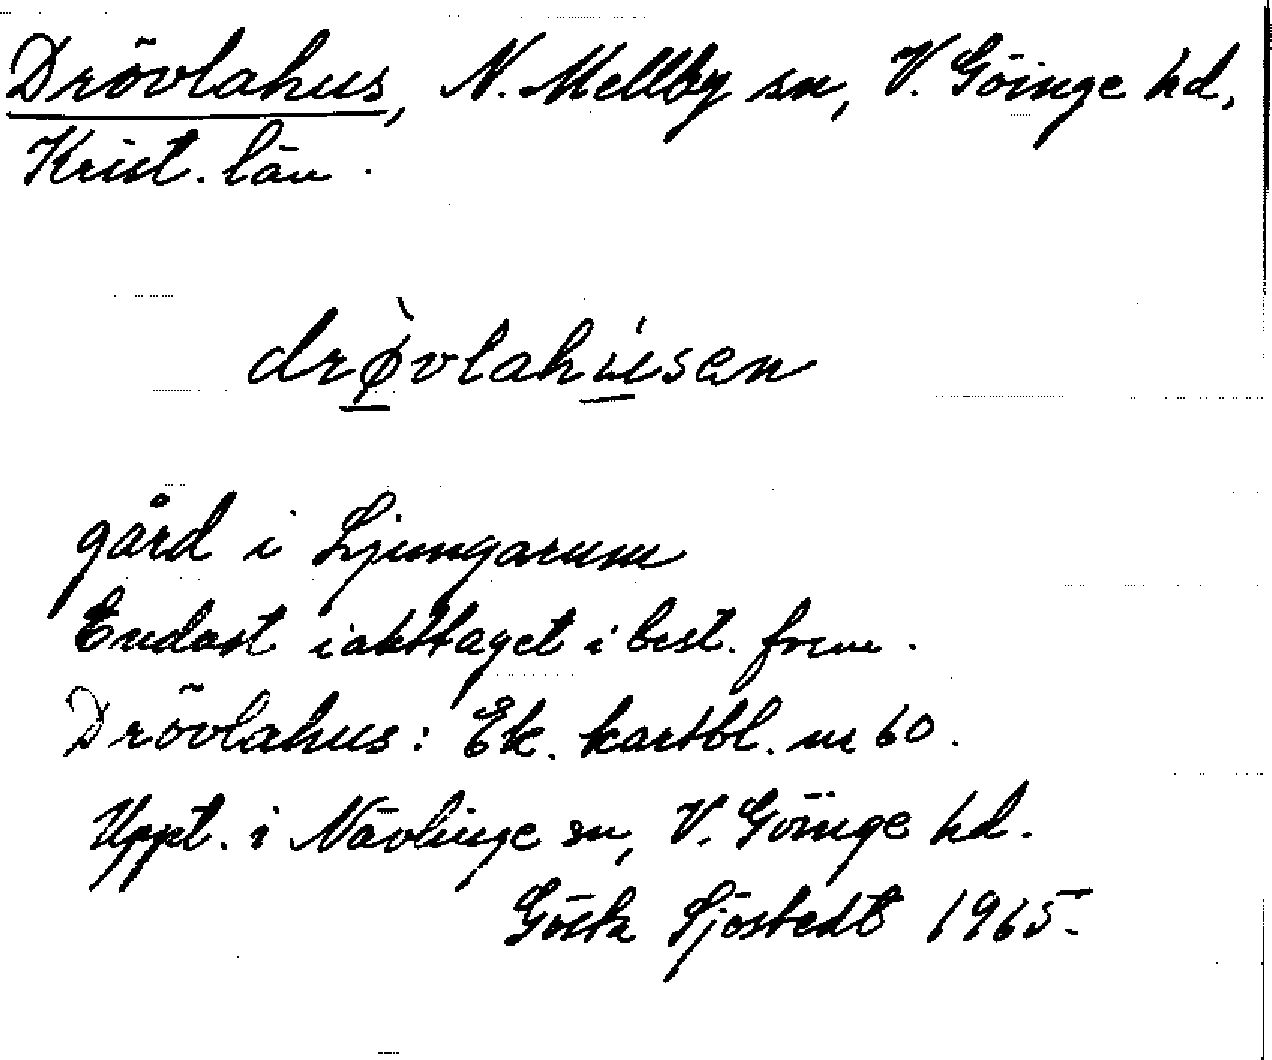 Drövlahus, N. Mellby sn, V. Göinge hd,
Krist. län.
drø̀vlahúsen
gård i Ljungarum
Endast iakttaget i best. form.
Drövlahus: Ek. kartbl. nr 60.
Uppt. i Nävlinge sn, V. Göinge hd.
Gösta Sjöstedt 1965.